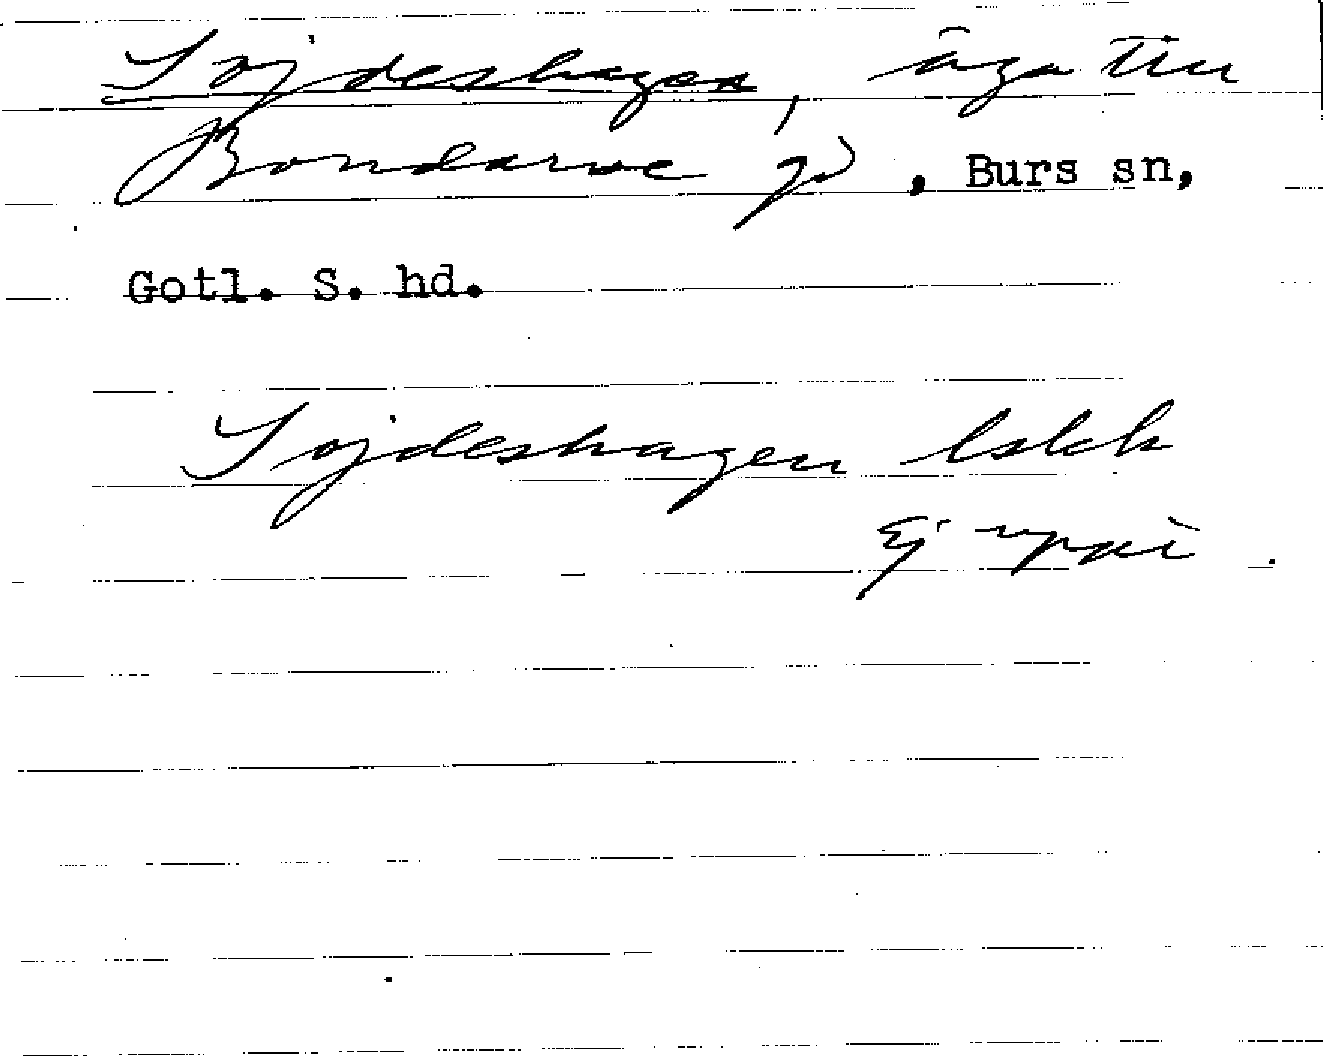 Sojdeshagen, äga till
Bondarve gd, Burs sn,
Gotl. S. hd.
Sojdeshagen lskh
Ej